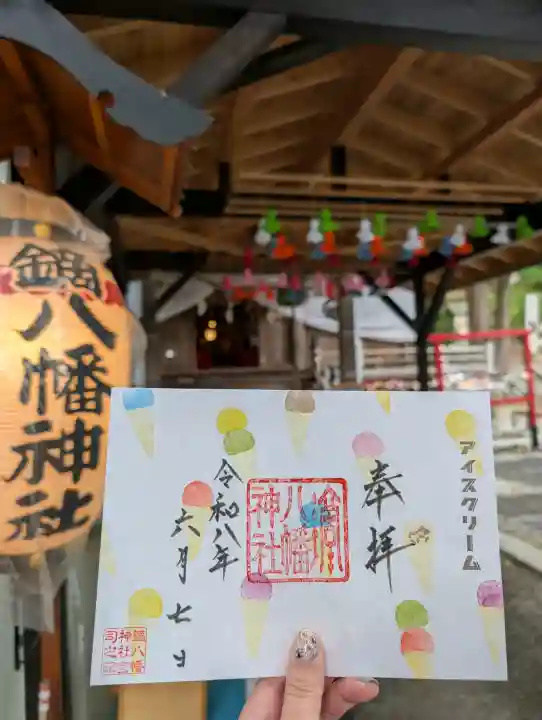 鍬八幡神社
アイスクリーム
奉拝
八幡
神社
令和八年
六月七日
八幡
神社